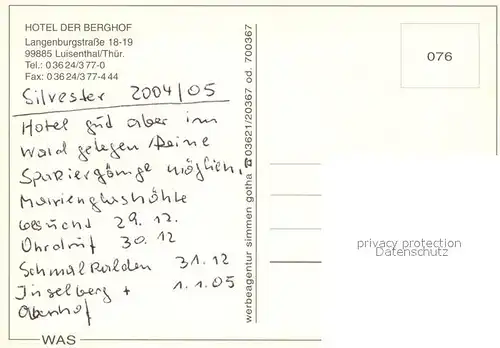 HOTEL DER BERGHOF
Langenburgstraße 18-19
99885 Luisenthal/Thür.
Tel.: 0 36 24/3 77-0
Fax: 0 36 24/3 77-4 44
076
Silvester 2004/05
Hotel gut aber im
Wald gelegen / keine
Spaziergänge möglich.
Marienglashöhle
besucht 29.12.
Ohrdruf 30.12
Schmalkalden 31.12
Inselberg + 1.1.05
Oberhof
werbeagentur simmen gotha ☎ 03621/20367 od. 700367
privacy protection
Datenschutz
WAS